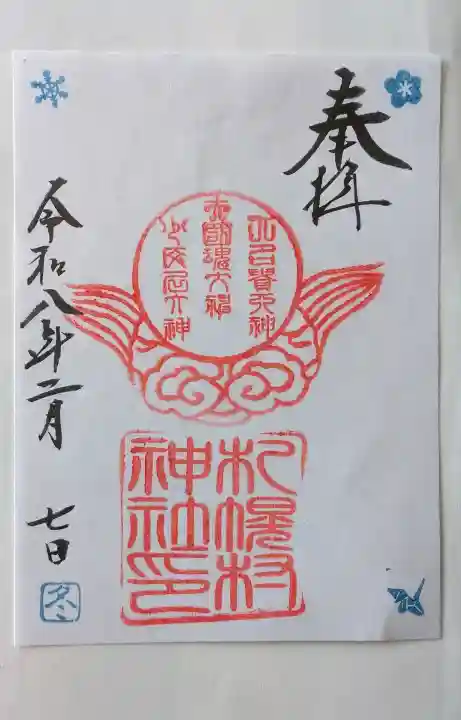 奉拝
大己貴大神
大國魂大神
少彦名大神
札幌村
神社印
令和八年二月 七日
冬